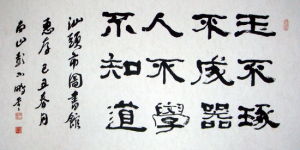 玉不琢
不成器
人不學
不知道
汕頭市圖書館
惠存 己丑春月